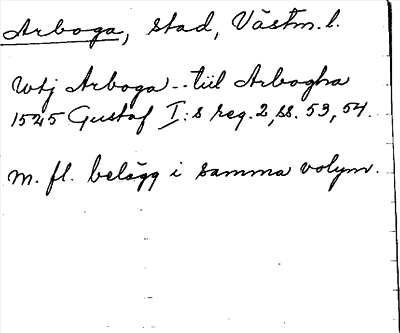 Arboga, stad, Västm. l.
wtj Arboga -- tiil Arbogha
1525 Gustaf I:s reg. 2, ss. 53, 54.
m. fl. belägg i samma volym.